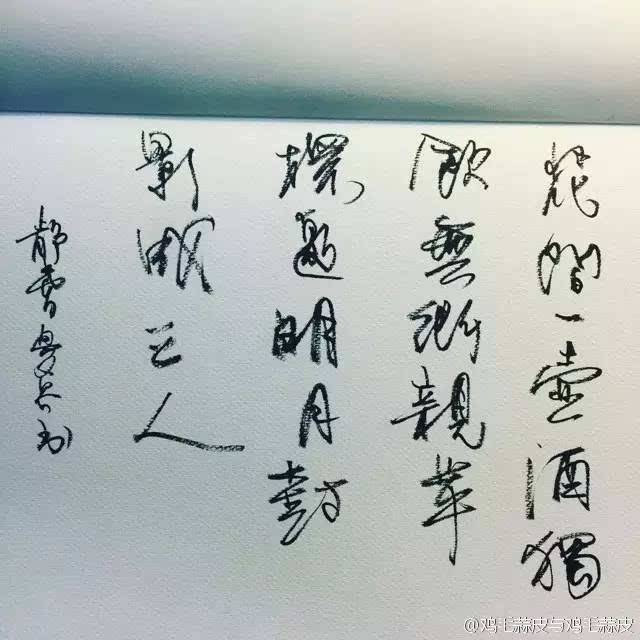 花間一壺酒獨
飲無所親舉
邀明月對
影成三人
靜
@鸡毛蒜皮与鸡毛蒜皮